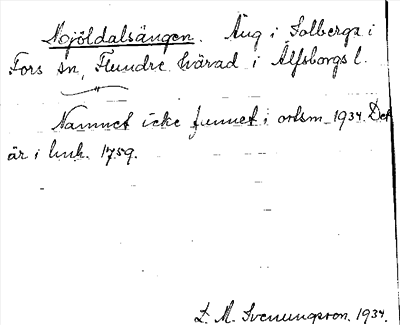 Mjöldalsängen. Äng i Solberga i
Fors sn, Flundre härad i Älfsborgs l.
Namnet icke funnet i ortsm. 1934. Det
är i huh. 1759.
L. M. Svenungsson. 1934.